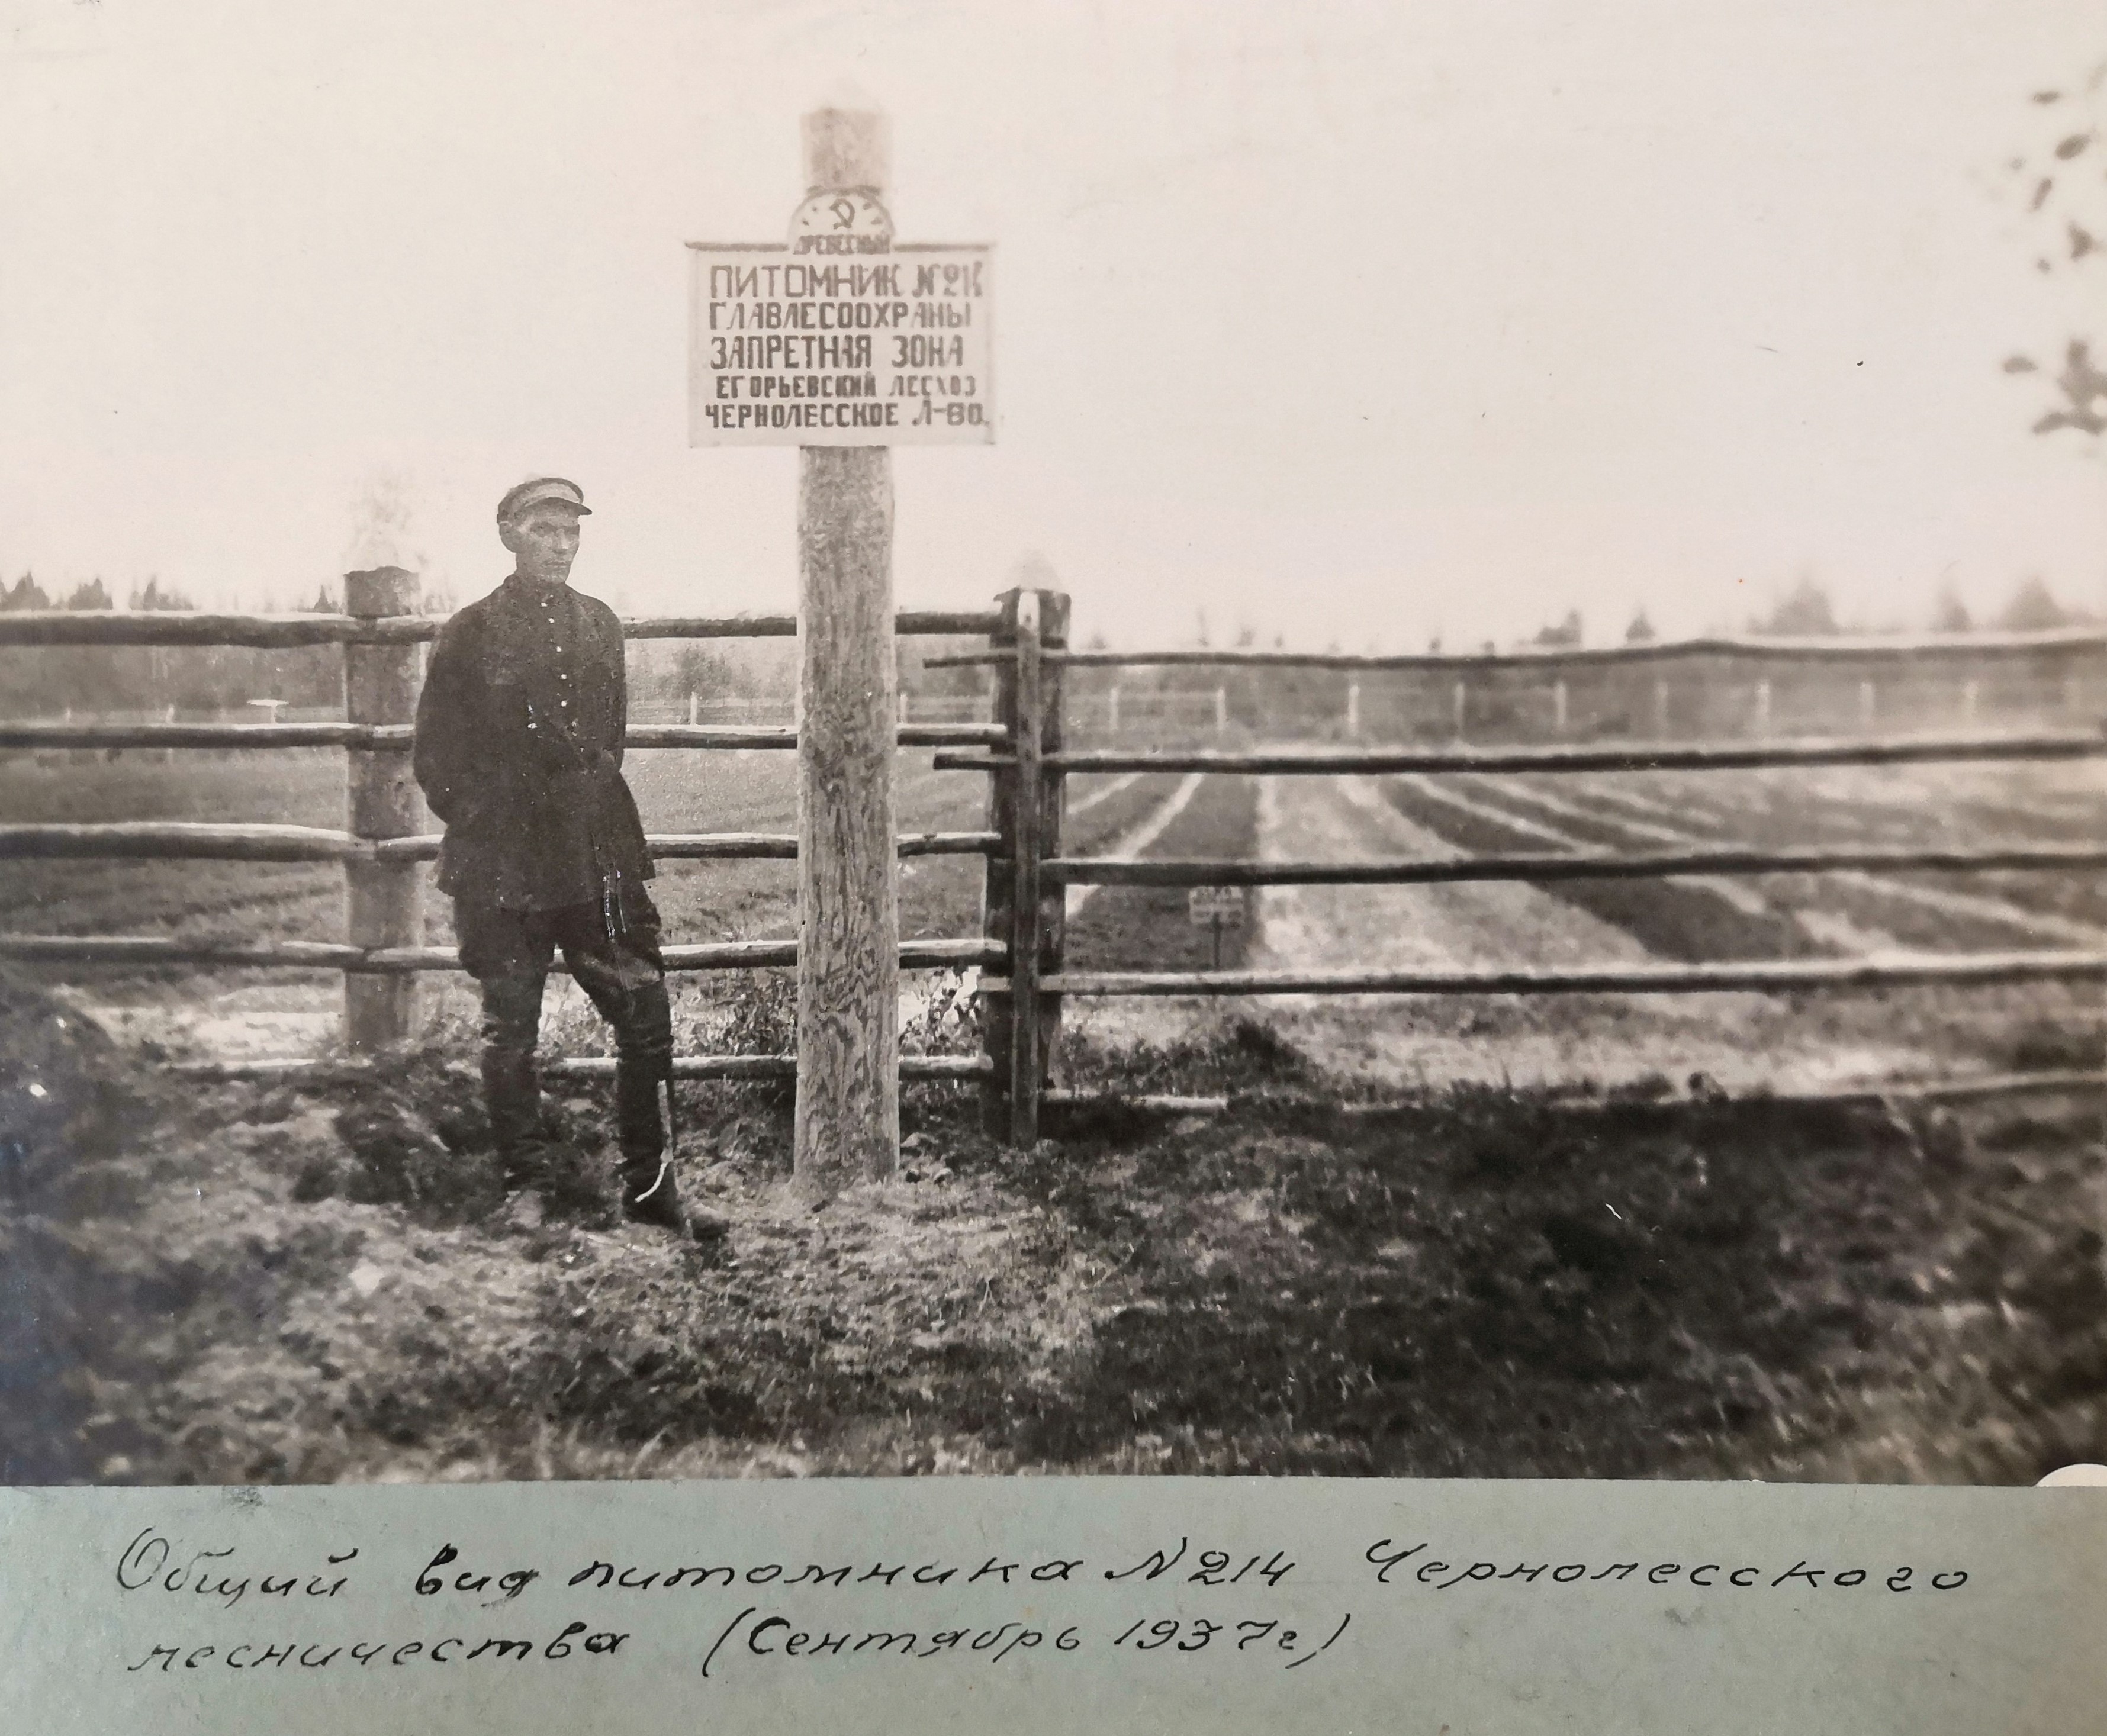 ДРЕВЕСНЫЙ
ПИТОМНИК №
ГЛАВЛЕСООХРАНЫ
ЗАПРЕТНАЯ ЗОНА
ЕГОРЬЕВСКИЙ ЛЕСХОЗ
ЧЕРНОЛЕССКОЕ Л-ВО.
Общий вид питомника №214 Чернолесского
лесничества (Сентябрь 1937г)